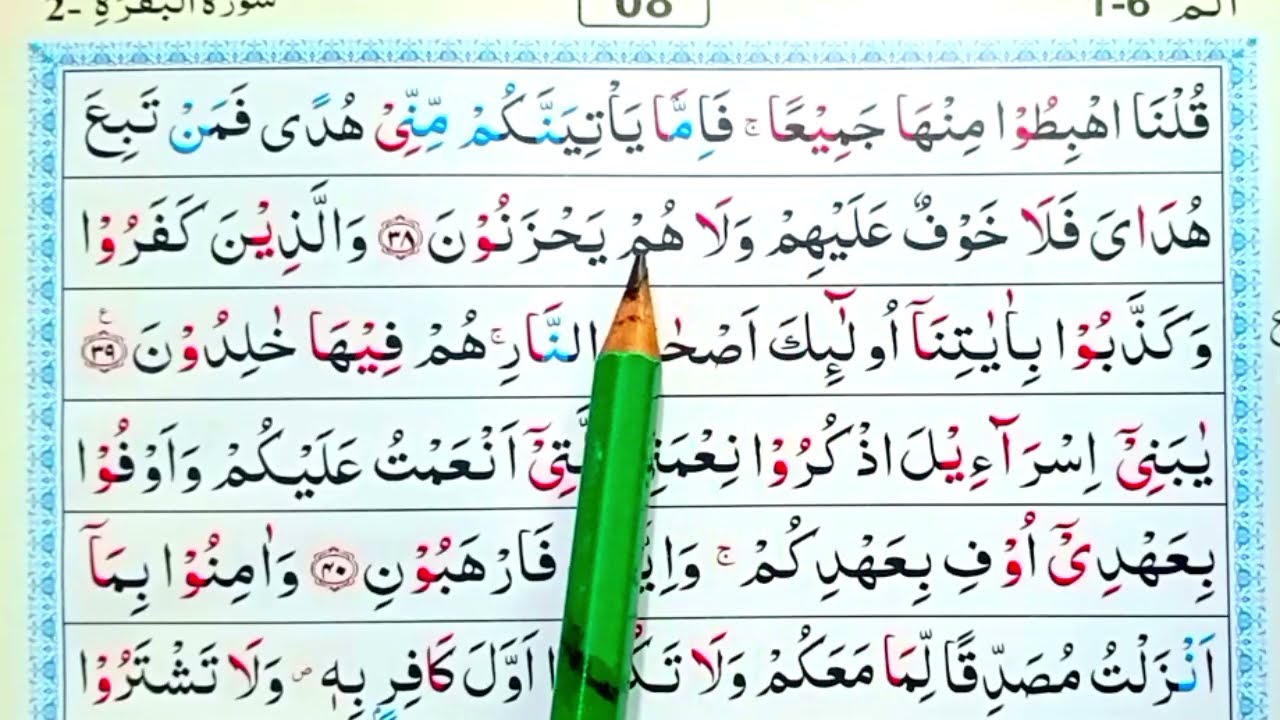 الٓمّٓ 1-6 08 سُوْرَةُ الْبَقَرَةِ -2
قُلْنَا اهْبِطُوْا مِنْهَا جَمِيْعًا ۚ فَاِمَّا يَاْتِيَنَّكُمْ مِّنِّيْ هُدًى فَمَنْ تَبِعَ
هُدَايَ فَلَا خَوْفٌ عَلَيْهِمْ وَلَا هُمْ يَحْزَنُوْنَ ﴿۳۸﴾ وَالَّذِيْنَ كَفَرُوْا
وَكَذَّبُوْا بِاٰيٰتِنَاۤ اُولٰٓئِكَ النَّارِ ۚ هُمْ فِيْهَا خٰلِدُوْنَ ﴿۳۹﴾ ع
يٰبَنِيْۤ اِسْرَآءِيْلَ اذْكُرُوْا اَنْعَمْتُ عَلَيْكُمْ وَاَوْفُوْا
بِعَهْدِيْۤ اُوْفِ بِعَهْدِكُمْ ۚ فَارْهَبُوْنِ ﴿۴۰﴾ وَاٰمِنُوْا بِمَاۤ
اَنْزَلْتُ مُصَدِّقًا لِّمَا مَعَكُمْ وَلَا اَوَّلَ كَافِرٍ بِهٖ ۖ وَلَا تَشْتَرُوْا